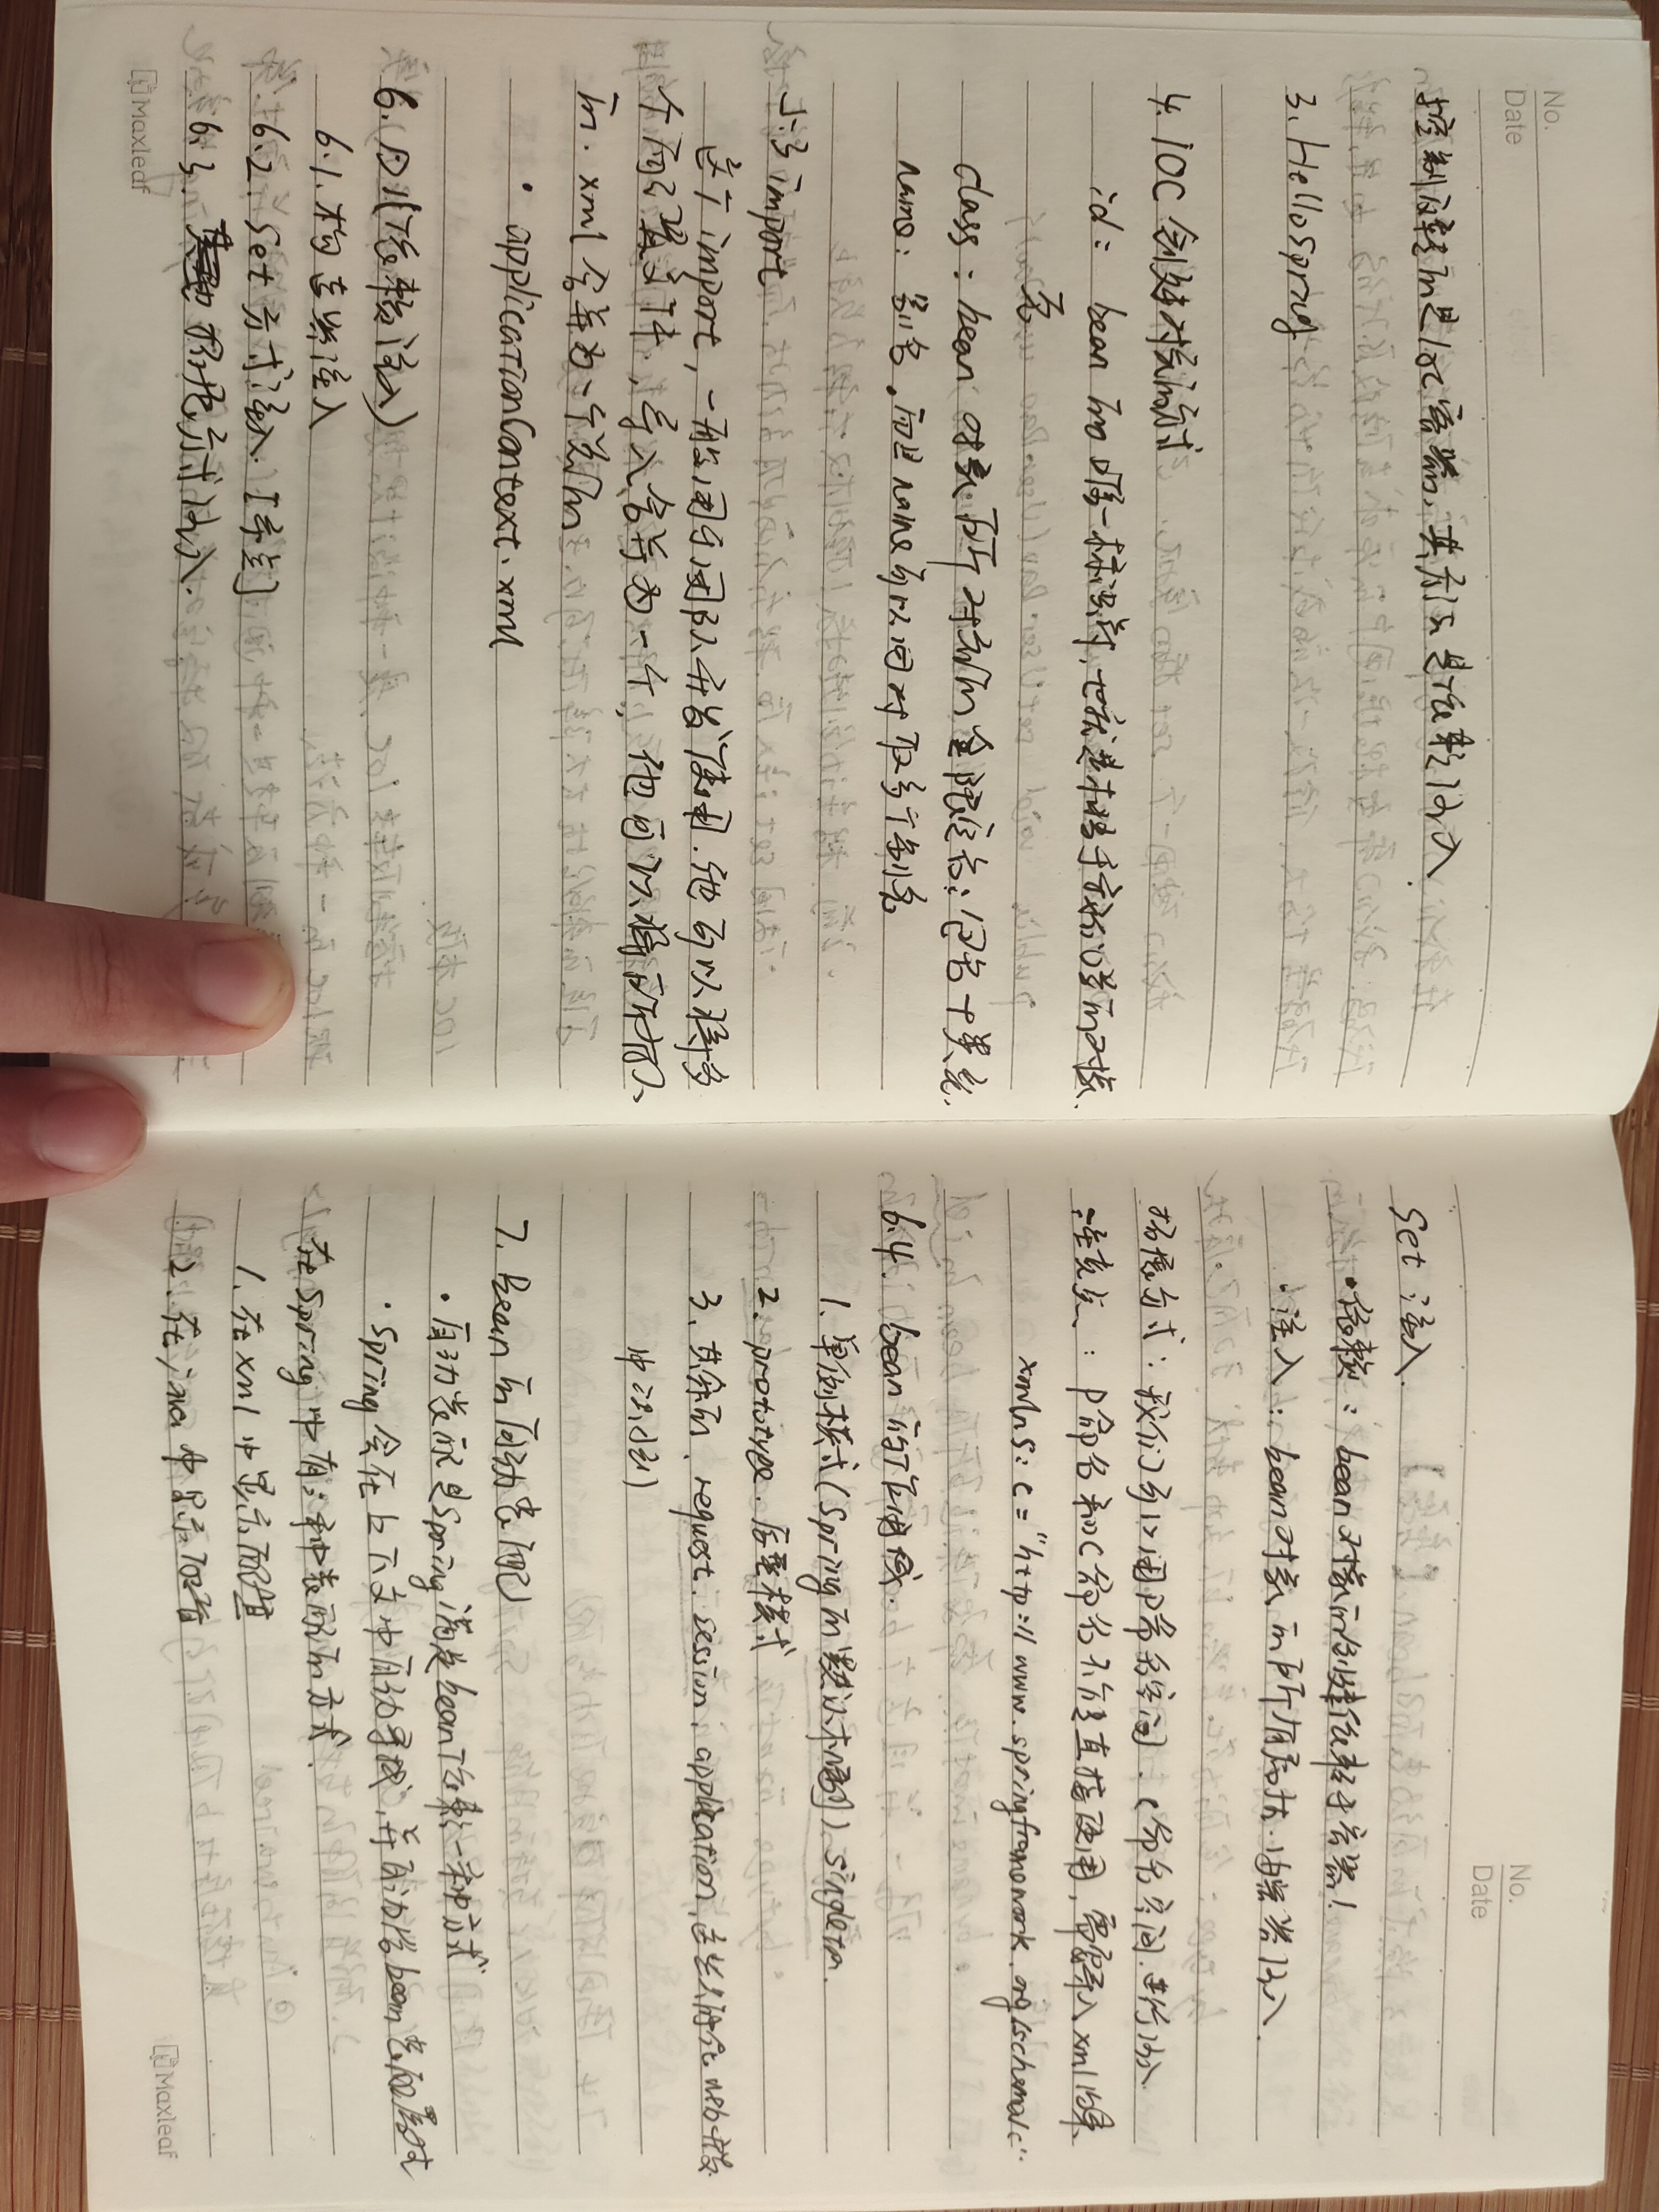 No.
Date
控制反转的是IOC容器,其方法是依赖注入
3. HelloSpring
4. IOC 创建对象的方式
id: bean 的唯一标识符,也就是相当于我们学的对象
名
class: bean 对象所对应的全限定名:包名+类名.
name: 别名,而且name可以同时取多个别名
5.3 import
这个import,一般用于团队开发使用.他可以将多
个配置文件,导入合并为一个,他可以将所有人
的.xml合并为一个总的
· applicationContext.xml
6. DI(依赖注入)
6.1.构造器注入
6.2. Set方式注入.[重点]
6.3. 拓展方式注入.
Maxleaf
No.
Date
Set 注入.
·依赖:bean对象的创建依赖于容器!
·注入:bean对象的所有属性,由容器注入.
拓展方式:我们可以用p命名空间.c命名空间.进行注入
注意点:p命名和c命名不能直接使用,需要导入xml约束、
xmlns:c="http://www.springframework.org/schema/c".
6.4. bean的作用域.
1. 单例模式(Spring的默认机制)singleton.
2. prototype.原型模式
3. 其余的、request、session、application,这些只能在web开发
中使用)
7. Bean的自动装配
·自动装配是Spring满足bean依赖一种方式
·Spring会在上下文中自动寻找,并自动给bean装配属性
在Spring中有三种装配的方式.
1. 在xml中显示配置
2. 在java中显示配置
Maxleaf